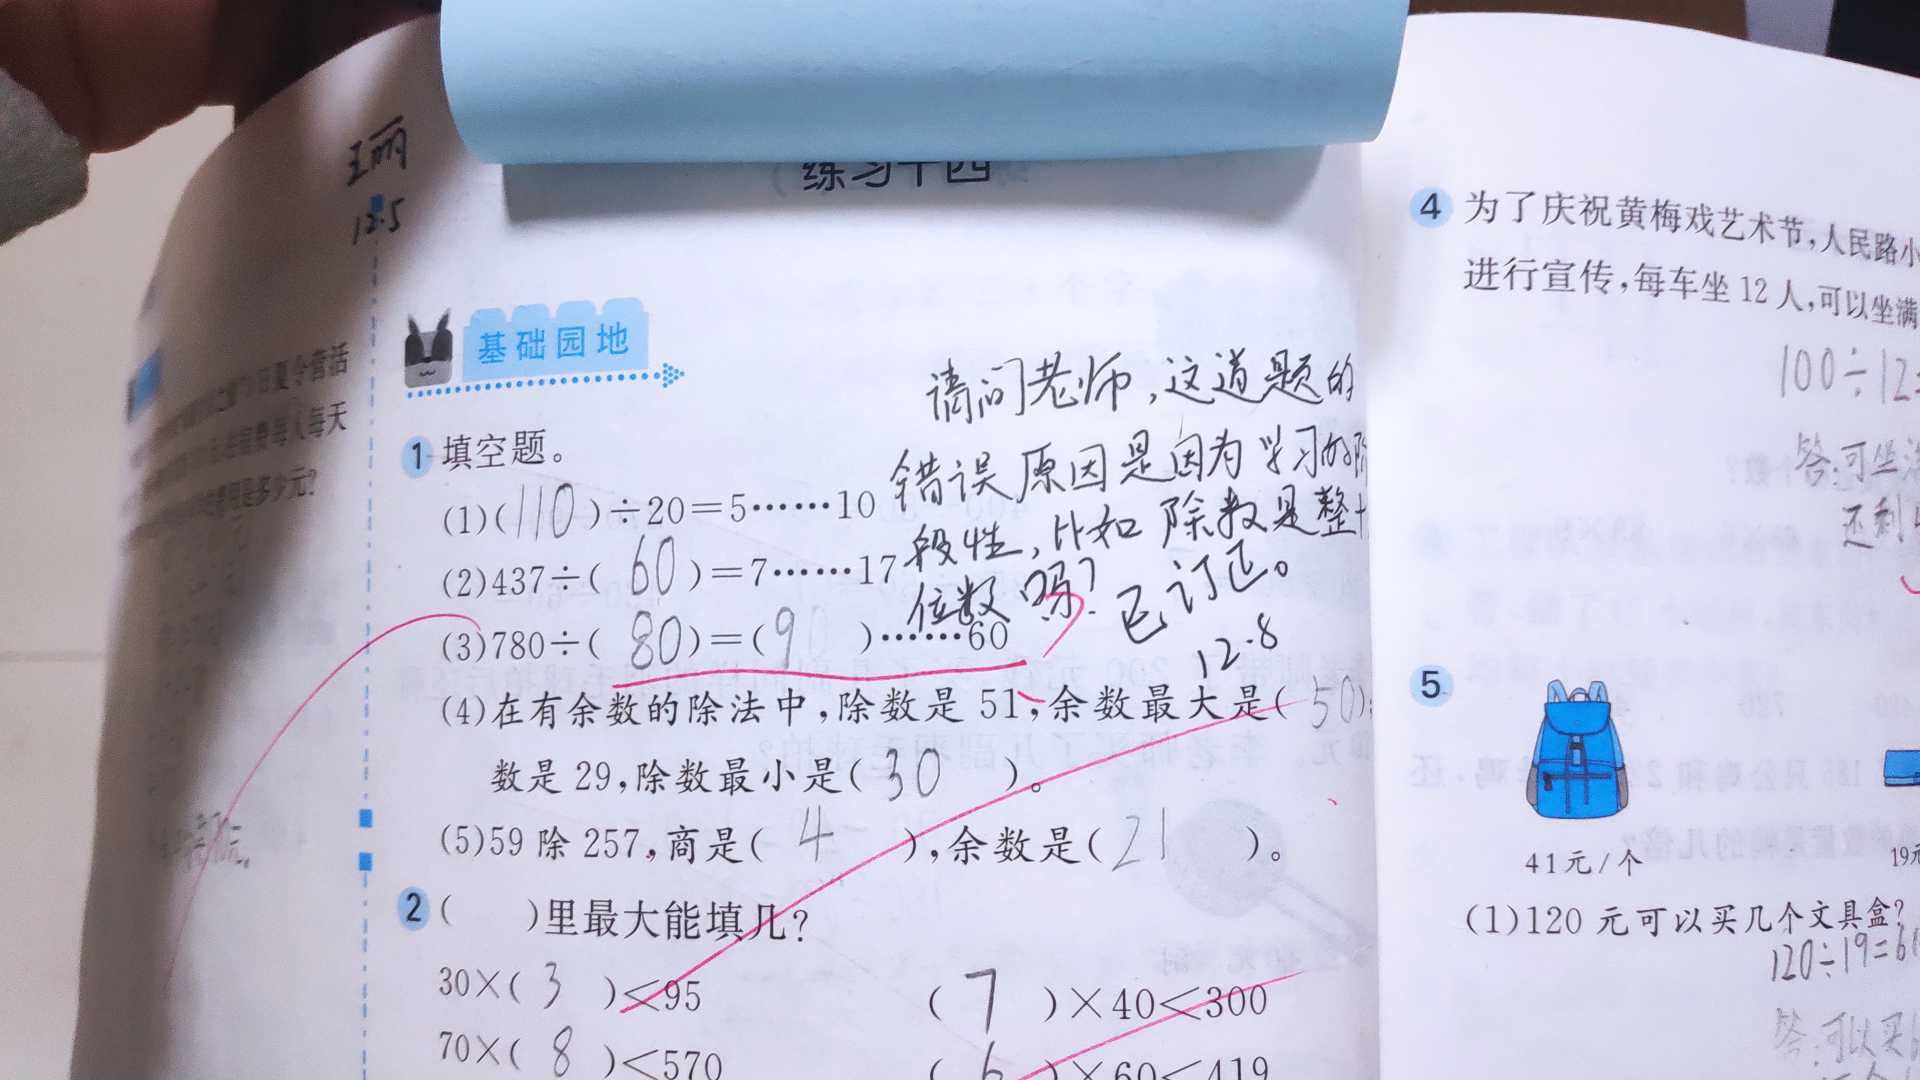 王丽
12.5
练习十四
基础园地
请问老师,这道题的
错误原因是因为学习的阶
段性,比如除数是整十
位数吗?
已订正。
12.8
1 填空题。
(1)(110)÷20=5……10
(2)437÷(60)=7……17
(3)780÷(80)=(90)……60
(4)在有余数的除法中,除数是51,余数最大是(50);
数是29,除数最小是(30)。
(5)59除257,商是(4),余数是(21)。
2 ( )里最大能填几?
30×(3)<95
(7)×40<300
70×(8)<570
(6)×60<419
4 为了庆祝黄梅戏艺术节,人民路小
进行宣传,每车坐12人,可以坐满
100÷12=
答:可坐满
还剩
5
41元/个
19元
(1)120元可以买几个文具盒?
120÷19=6
答:可以买6
日夏令营活
费每人每天
是多少元?